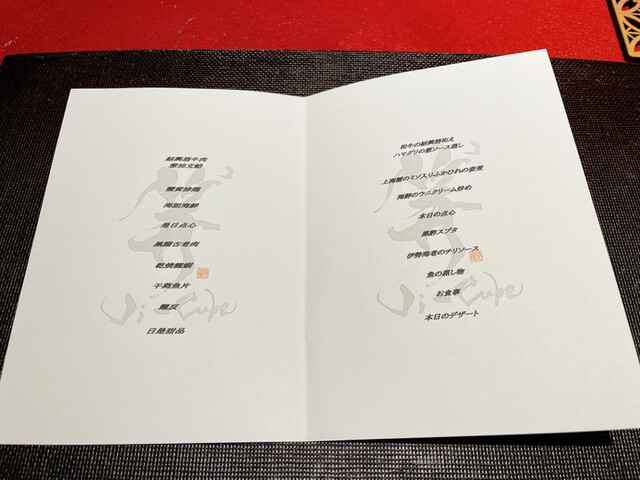 紹興酒牛肉
葱油文蛤
蟹黄排翅
海胆海鮮
是日点心
黒醋古老肉
乾焼龍蝦
平蒸魚片
麺反
日是甜品
和牛の紹興酒和え
ハマグリの葱ソース蒸し
上海蟹のミソ入りふかひれの姿煮
海鮮のウニクリーム炒め
本日の点心
黒酢スブタ
伊勢海老のチリソース
魚の蒸し物
お食事
本日のデザート